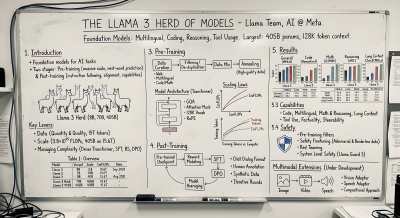 THE LLAMA 3 HERD OF MODELS - Llama Team, AI @ Meta.
Foundation Models: Multilingual, Coding, Reasoning, Tool Usage. Largest: 405B params, 128K token context.
1. Introduction
• Foundation models for AI tasks
• Two stages: Pre-training (massive scale, next-word prediction) & Post-training (instruction following, alignment, capabilities)
Llama 3 Herd (8B, 70B, 405B)
Key Levers:
• Data (Quantity & Quality, 15T tokens)
• Scale (3.8×10²⁵ FLOPs, 405B on 15.6T)
• Managing Complexity (Dense Transformer, SFT, RS, DPO)
Table 1: Overview
3. Pre-Training
Data Curation
Filtering/De-duplication
Data Mix
Annealing
• Web
• Multilingual
• Code/Math
(High-quality data)
Model Architecture (Transformer)
• GQA
• Attention Mask
• 128K Vocab
• RoPE
Scaling Laws
4. Post-Training
Pre-trained Checkpoint
Reward Modeling
SFT
DPO
Model Averaging
• Chat Dialog Format
• Human Annotation
• Synthetic Data
• Iterative Rounds
5. Results
5.3 Capabilities
• Code, Multilingual, Math & Reasoning, Long Context
• Tool Use, Factuality, Steerability
5.4 Safety
• Pre-training Filters
• Safety Finetuning (Adversarial & Borderline data)
• Red Teaming
• System Level Safety (Llama Guard 3)
Multimodal Extensions (Under Development)
Image
Video
Speech
• Vision Adapter
• Speech Adapter
• Compositional Approach